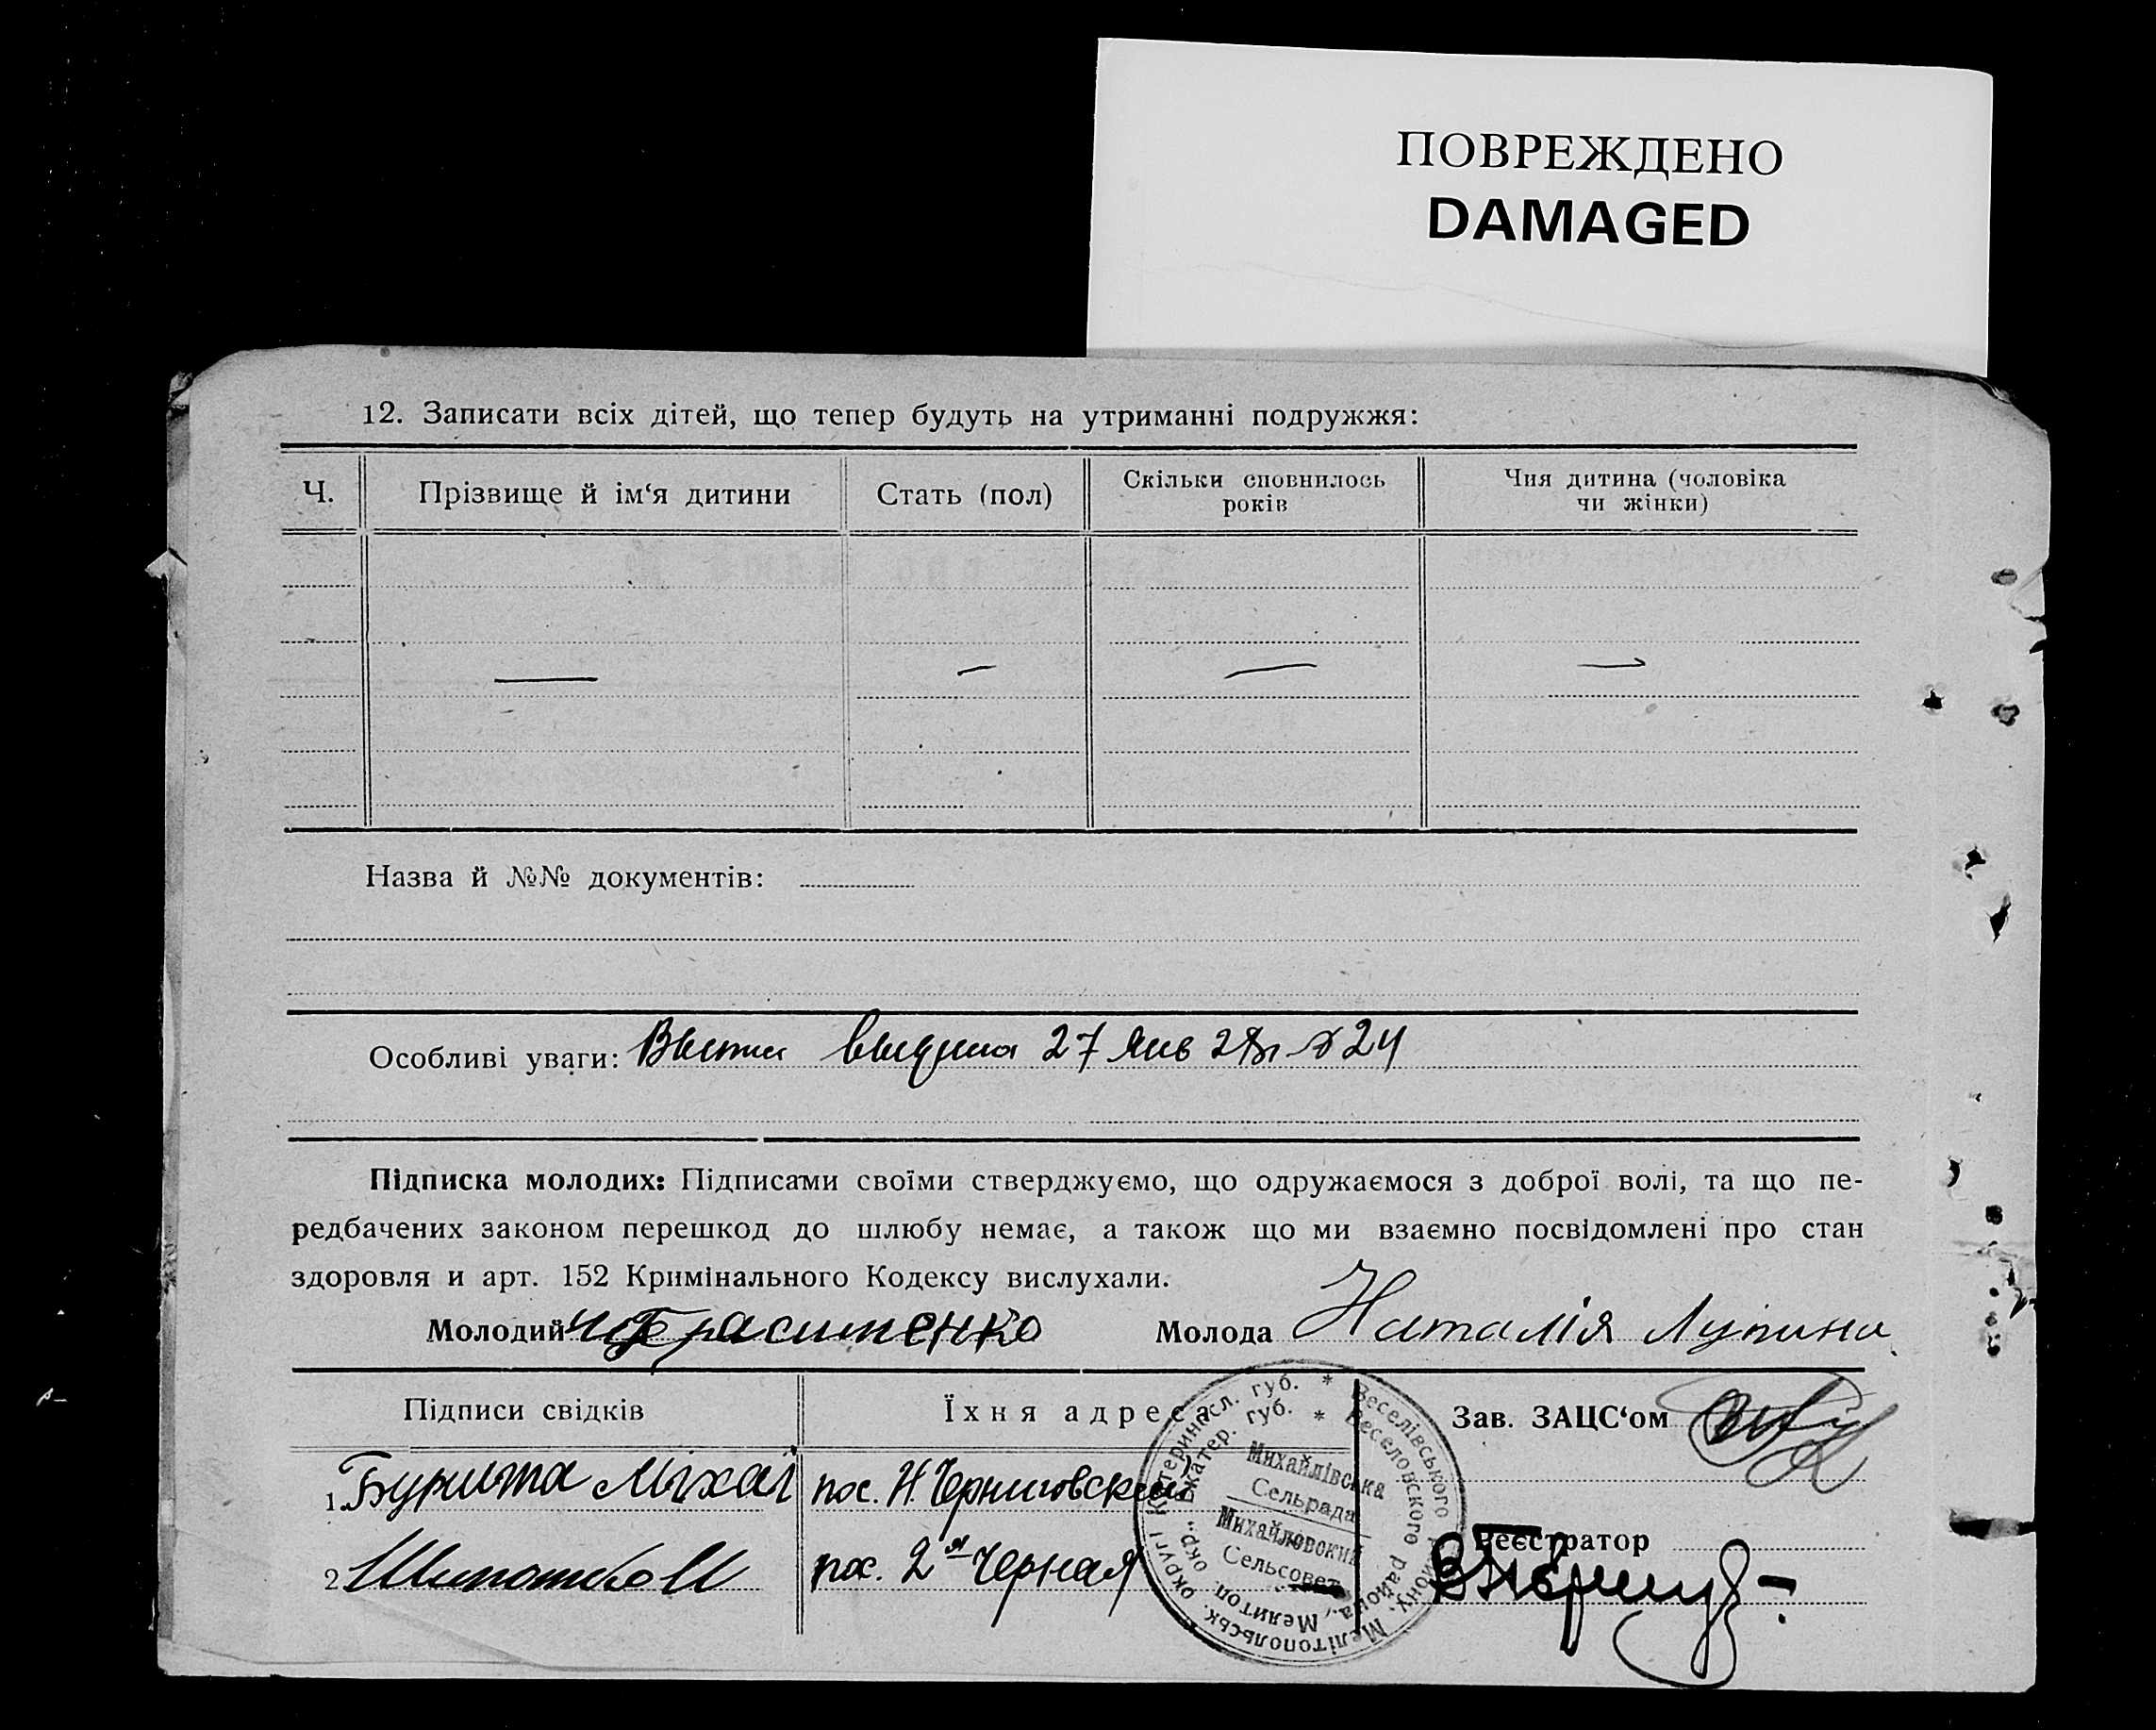 ПОВРЕЖДЕНО
DAMAGED
12. Записати всіх дітей, що тепер будуть на утриманні подружжя:
Ч.
Прізвище й ім‘я дитини
Стать (пол)
Скільки сповнилось
років
Чия дитина (чоловіка
чи жінки)
Назва й №№ документів:
Особливі уваги: 27 янв 24
Підписка молодих: Підписами своїми стверджуємо, що одружаємося з доброї волі, та що пе-
редбачених законом перешкод до шлюбу немає, а також що ми взаємно посвідомлені про стан
здоровля и арт. 152 Кримінального Кодексу вислухали.
Молодий
Молода Наталія Лупина
Підписи свідків
Їхня адреса
Зав. ЗАЦС‘ом
1. Міхаі пос. Н. Черниговский
Реєстратор
2. пос. 2я Черная
Катериносл. губ. * Веселівського району, Мелітопольськ. округі
Екатер. губ. * Веселовского района, Мелитоп. окр.
Михайлівська
Сельрада
Михайловский
Сельсовет